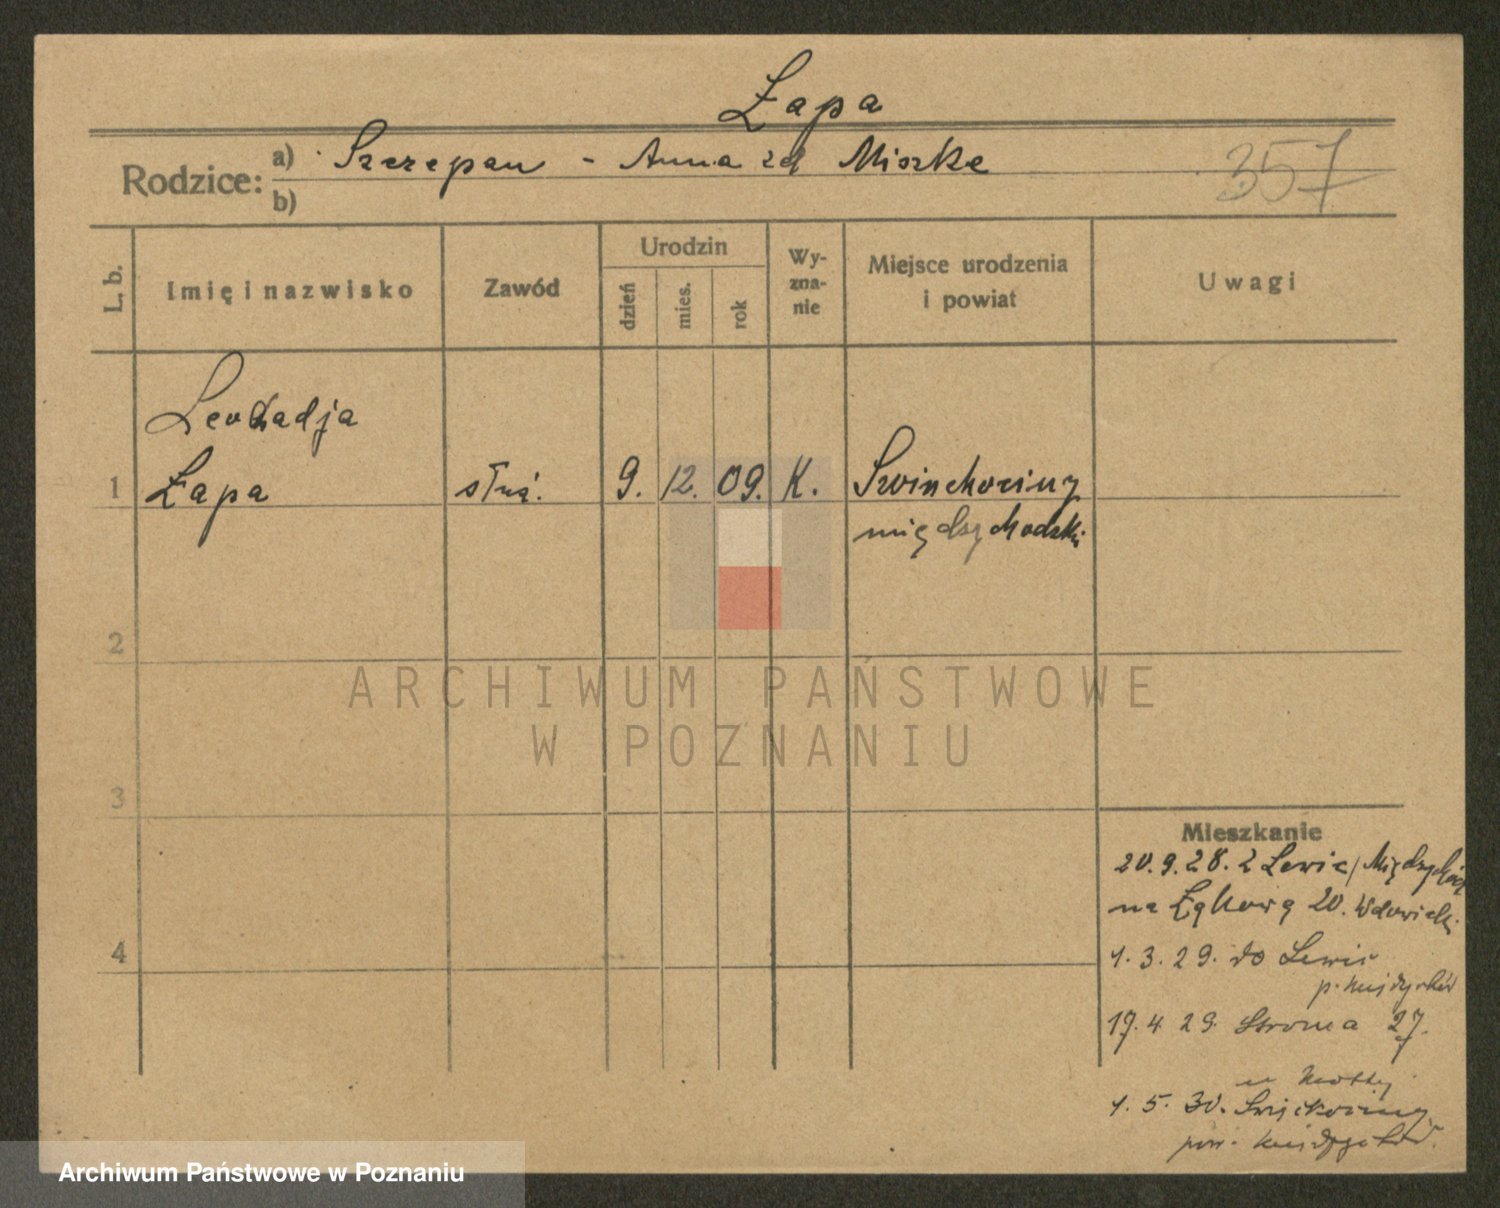 Łapa
Rodzice: a) Szczepan - Anna zd Miszke
b)
357
L. b.
Imię i nazwisko
Zawód
Urodzin
dzień
mies.
rok
Wy-
zna-
nie
Miejsce urodzenia
i powiat
Uwagi
Leokadja
1 Łapa służ. 9. 12. 09. K. Swinchociny
międzychodzki
2
ARCHIWUM PAŃSTWOWE
W POZNANIU
3
Mieszkanie
20.9.28. z Lewic/Międzychód
na Łąkową 20.
4
1.3.29. do Lewic
p. międzychód
17.4 29. Stroma 27.
1.5.30.
pow. międzychód.
Archiwum Państwowe w Poznaniu